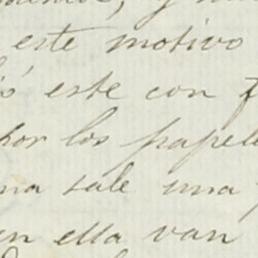 este motivo
este con
por los papel
na sale una
en ella van